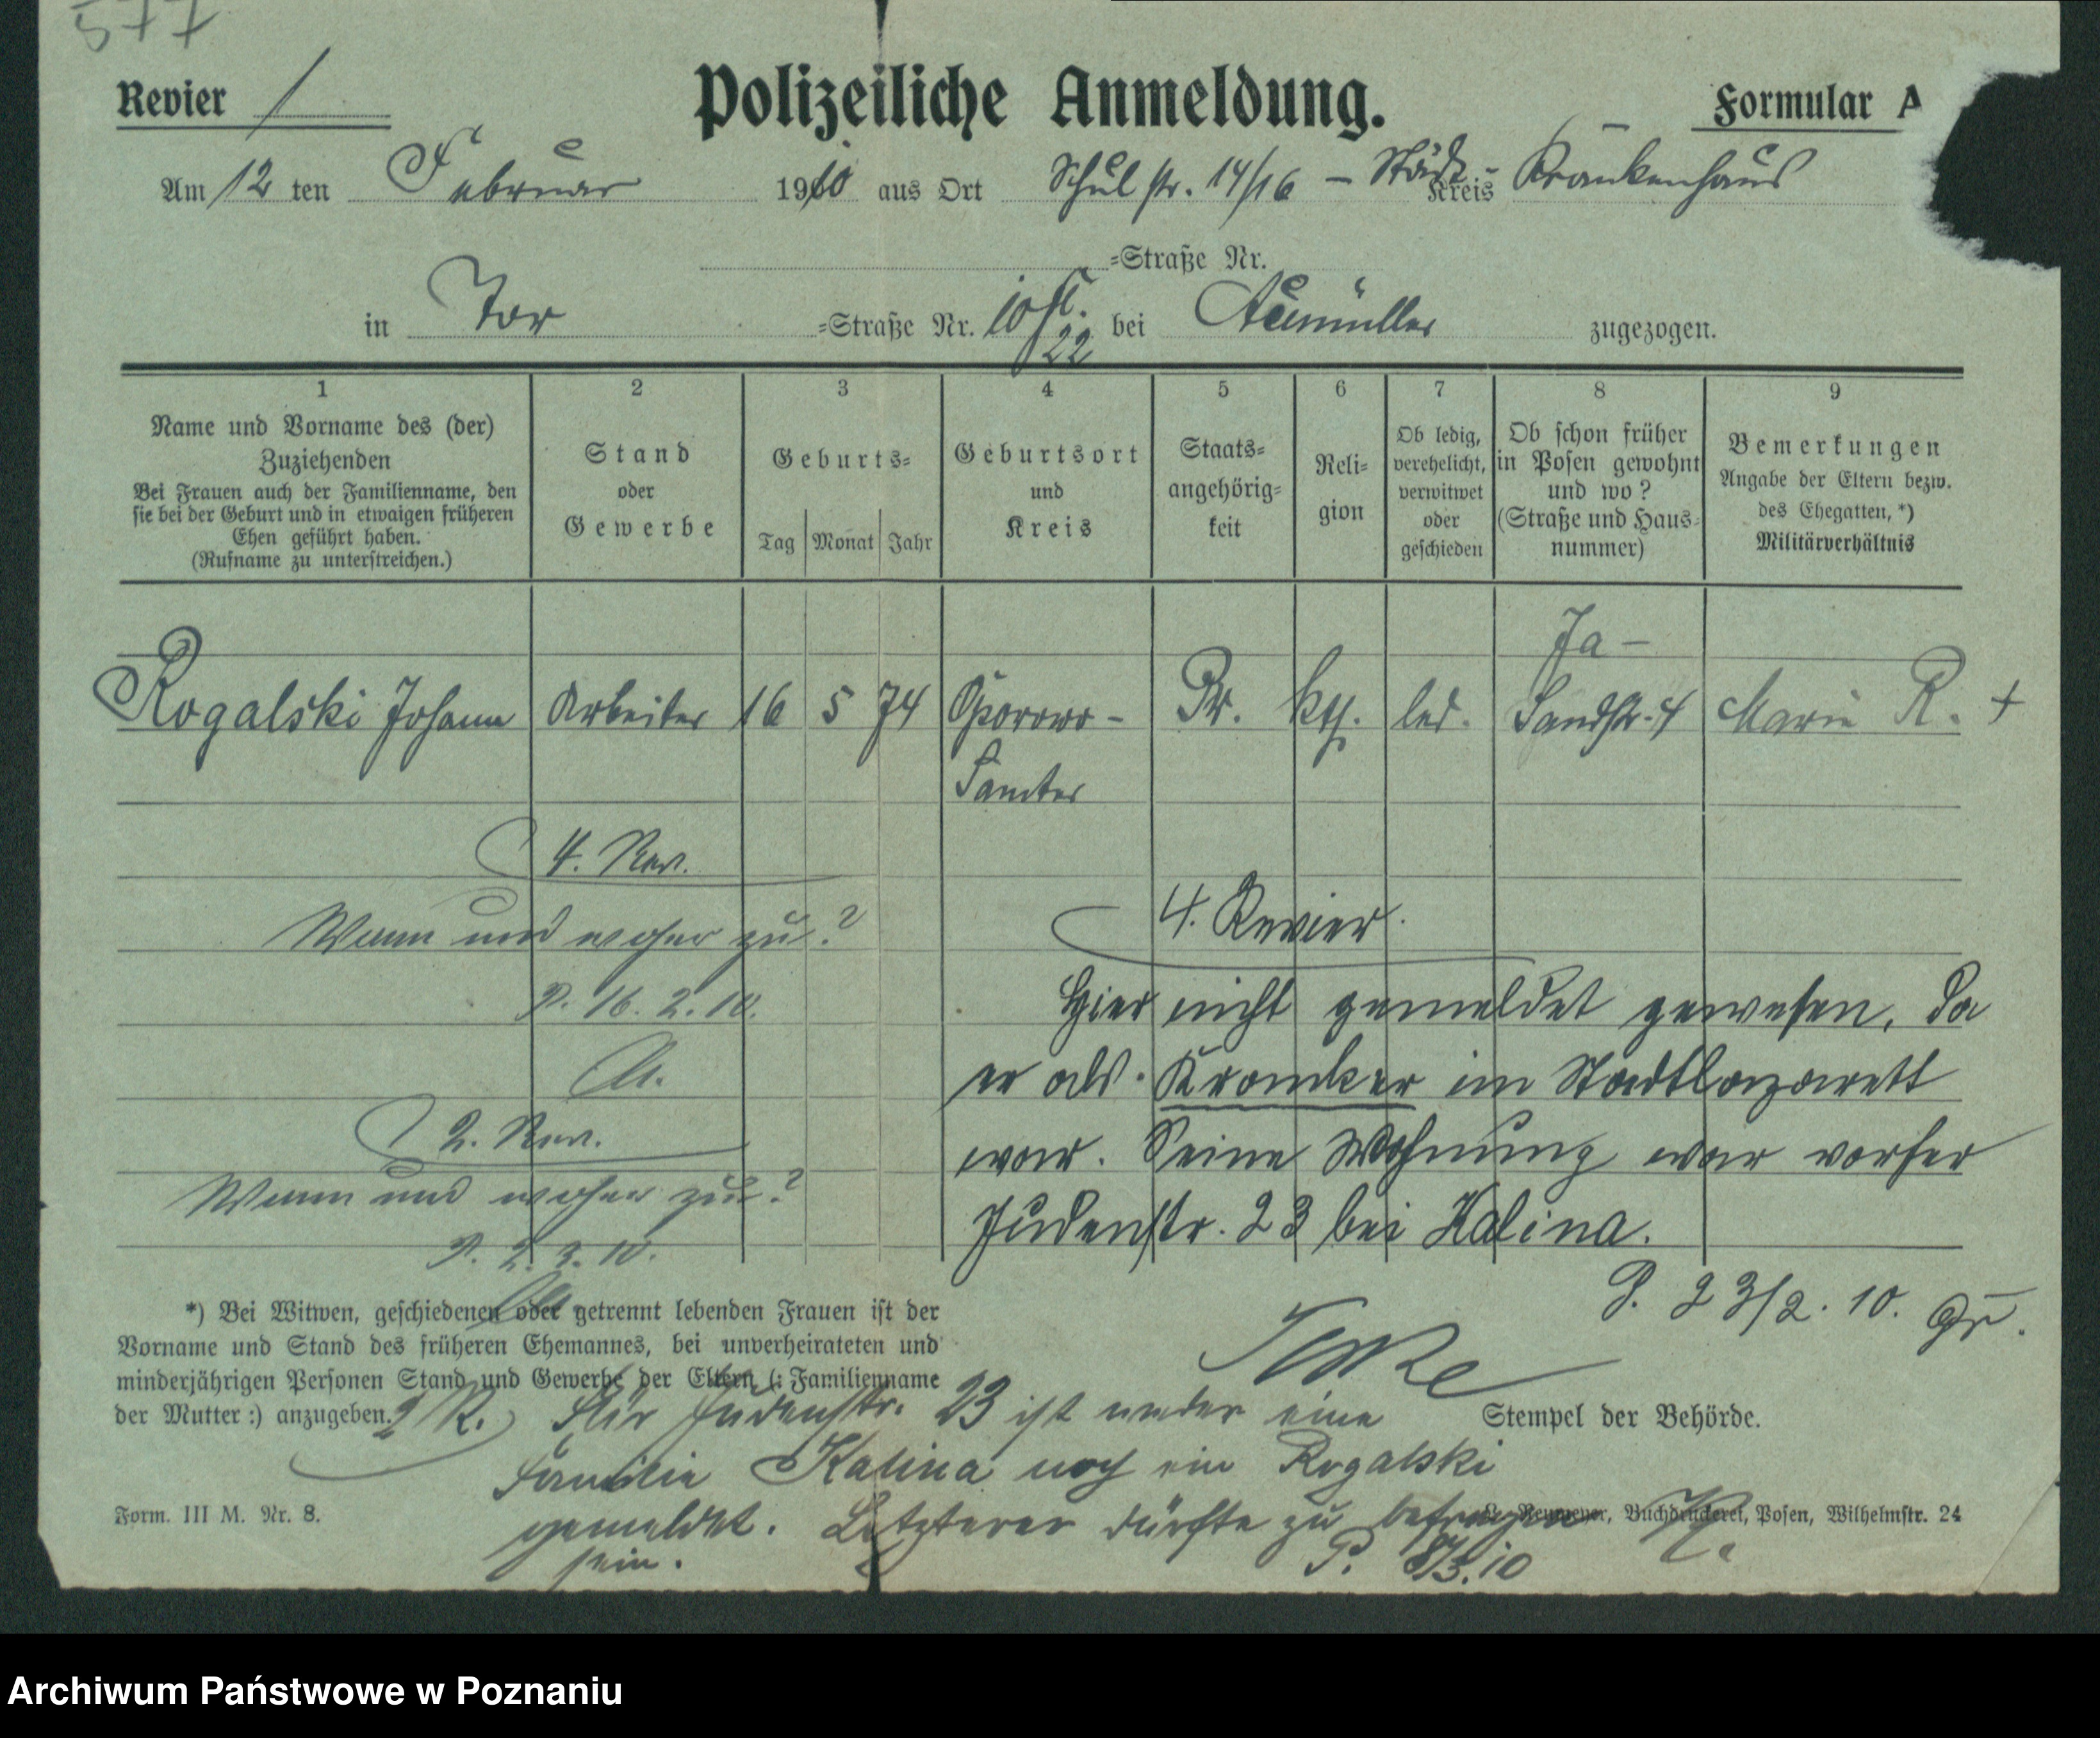 577
Revier 1 Polizeiliche Anmeldung. Formular A
Am 12 ten Februar 1910 aus Ort Schulstr. 14/16 – Städt. Kreis Krankenhaus
=Straße Nr.
in Tor =Straße Nr. 10 22 bei Neumüller zugezogen.
1 2 3 4 5 6 7 8 9
Name und Vorname des (der)
Zuziehenden
Bei Frauen auch der Familienname, den
sie bei der Geburt und in etwaigen früheren
Ehen geführt haben.
(Rufname zu unterstreichen.)
Stand
oder
Gewerbe
Geburts=
Tag Monat Jahr
Geburtsort
und
Kreis
Staats=
angehörig=
keit
Reli=
gion
Ob ledig,
verehelicht,
verwitwet
oder
geschieden
Ob schon früher
in Posen gewohnt
und wo?
(Straße und Haus=
nummer)
Bemerkungen
Angabe der Eltern bezw.
des Ehegatten, *)
Militärverhältnis
Ja –
Rogalski Johann Arbeiter 16 5 74 Oporowo – Pr. kth. led. Sandstr. 4 Marie R. +
Samter
4. Rev.
Wann und woher zu?
P. 16. 2. 10.
2. Rev.
Wann und woher zu?
P. 2. 3. 10.
4. Revier.
Hier nicht gemeldet gewesen, da
er als Kranker im Stadtlazarett
war. Seine Wohnung war vorher
Judenstr. 23 bei Kalina.
P. 23/2. 10.
*) Bei Witwen, geschiedenen oder getrennt lebenden Frauen ist der
Vorname und Stand des früheren Ehemannes, bei unverheirateten und
minderjährigen Personen Stand und Gewerbe der Eltern (: Familienname
der Mutter :) anzugeben.
Stempel der Behörde.
2 R. Für Judenstr. 23 ist weder eine
Familie Kalina noch ein Rogalski
gemeldet. Letzterer dürfte zu befragen
sein. P. 8/3. 10
Form. III M. Nr. 8.
Neumeyer, Buchdruckerei, Posen, Wilhelmstr. 24
Archiwum Państwowe w Poznaniu